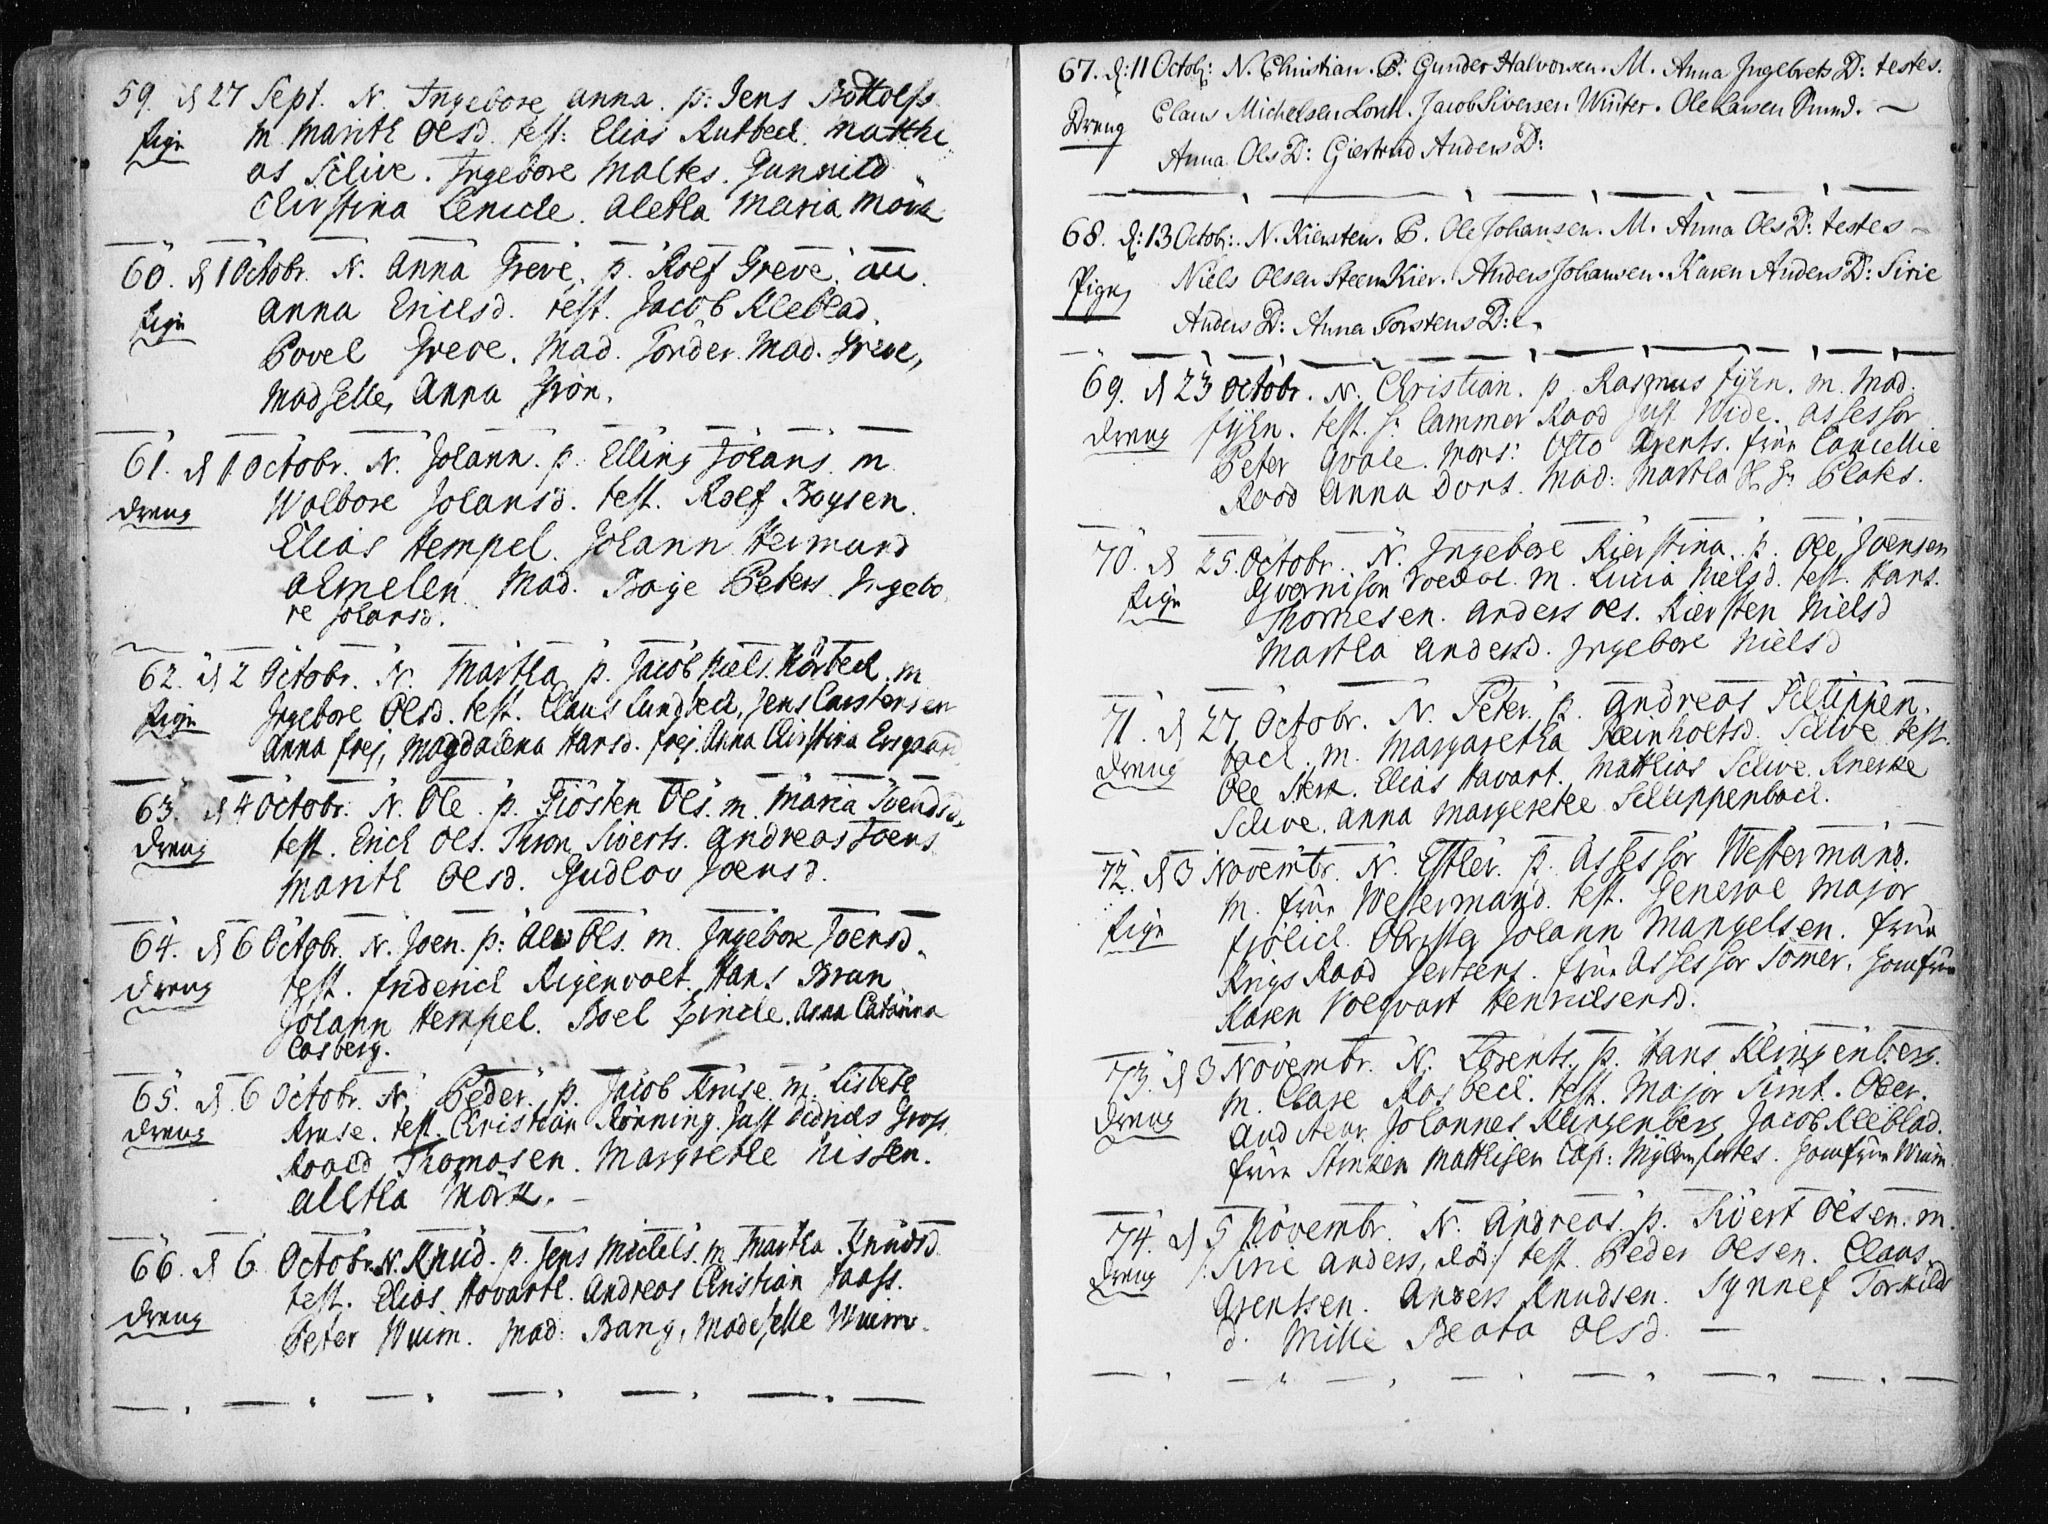 59. d 27 Sept. N. Ingebore anna. p: Jens Bottolfs
Pige m. Marith Olsd. test: Elias Rutbech. Matthi
as Schive. Ingebore Maltes. Gunnild
Christina Lenicke. Aletha Maria Mörch
60. d 1 Octobr. N. Anna Greve. p. Rolf Greve. m.
Pige Anna Ericlsd. test. Jacob Kleblad.
Povel Greve. Mad. Tönder. Mad. Greve,
Madselle, Anna Grön.
61. d 1 Octobr. N. Johann. p. Elling Johans. m
Dreng Wolbore Johansd. test. Rolf Boysen.
Elias Hempel. Johann Hermand
ahmelen. Mad. Boye Peters. Ingebo
re Johansd.
62. d 2 Octobr. N. Martha p. Jacob Niels. Hörbech. m
Pige Ingebore Olsd. test. Claus Lundbech, Jens Carstensen
Anna frej, Magdalena Hansd. frej. Anna Christina Ersgaard
63. d 4 Octobr. N. Ole. p. Tiösten Ols. m. Maria Svendsd.
Dreng test. Erich Ols. Thron Siverts. Andreas Joens
Marith Olsd. Gudlov Joensd.
64. d 6 Octobr. N. Joen. p: Ols. m. Ingebore Joensd.
Dreng test. friderich Rigervolt. Hans Brun
Johann Hempel. Boel Zincle. Anna Catarina
Casberg.
65. d. 6 Octobr. N. Peder. p. Jacob Kruse. m. Lisbeth
Dreng Kruse. test. Christian Rönning. Just Didricks Gross.
Roald Thomasen. Margrethe Nissen.
Alltha Mörch. —
66. d 6. Octobr. N. Knud. p. Jens Michels. m. Martha Knudsd
Dreng test. Elias Hovarth. Andreas Christian Haass.
Peter Wuim. Mad: Bang, Madeselle Wuim.
67. d: 11 Octob: N. Christian. P: Gunder Halvorsen. M. Anna Ingebrets D: testes.
Dreng Claus Michelsen Lorch. Jacob Siversen Winter. Ole Larsen Smed. —
Anna Ols D: Giertrud Anders D:
68. d: 13 Octob: N. Kiersten. P. Ole Johansen. M. Anna Ols D: testes —
Pige Niels Olsen SteenKier. Anders Johansen. Karen Anders D: Sirie
Anders D: Anna Torstens D:
69. d 23 octobr. N. Christian. p. Rasmus fyhn. m. Mad.
Dreng fyhn. test. Hr Cammer Raad Just Wide. assessor
Peter Qvale. Mons: Otto Arents. frue Cancellie
Raad Anna Dons. Mad: Martha Hr Hr Ploks.
70. d 25. Octobr. N. Ingebore Kierstina. p. Ole Joensen
Pige Gvarnison Soldat. m. Lucia Nielsd. test. Hans
Thomesen. Anders ols. Kiersten Nielsd
Martha Andersd. Ingebore Nielsd
71. d 27. Octobr. N. Peter. p. Andreas Schlippen.
Dreng bach. m. Margaretha Reinholtsd. Schive. test.
Ole Sterk. Elias Havart. Matthias Schive. Anerke
Schive. Anna Margarethe Schlippenbach.
72. d 3 Novembr. N. Esther. p. Assessor Westermand.
Pige m. frue Westermand. test. General Major
frölich. Obrister Johann Mangelsen. frue
Krigs Raad Gertsens. frue Assessor Tömer. Jomfrue
Karen Volqvart Henrichsensd.
73. d 3 Novembr. N. Lorents. p. Hans Klingenberg.
Dreng m. Clare Rosbech. test. Major Simt. Ober.
Auditeur Johannes Klingenberg Jacob Kleblad.
frue Stinken Mathisen Cap: Jomfrue Wuim.
74. d 5 Novembr. N. Andreas. p. Sivert Olsen. m.
Dreng /: Sirie Anders, död :/ test. Peder Olsen. Claus
Arentsen. Anders Knudsen. Synnef Torkilds
d. Mille Beata Olsd. —